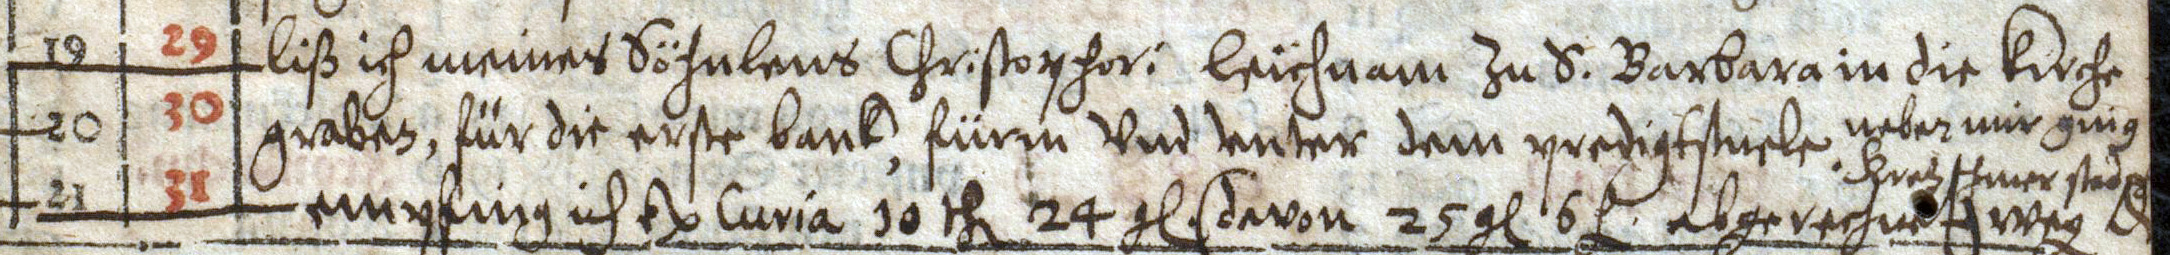 19 29 liß ich meines Söhnlens Christophori leichnam zu S. Barbara in die Kirche
20 30 graben, für die erste bank, fürm vnd vnter dem predigtstuele neben mir ging
Kretzschmer
21 31 empfing ich ex Curia 10 th 24 gl (davon 25 gl 6 abgerechnet) weg